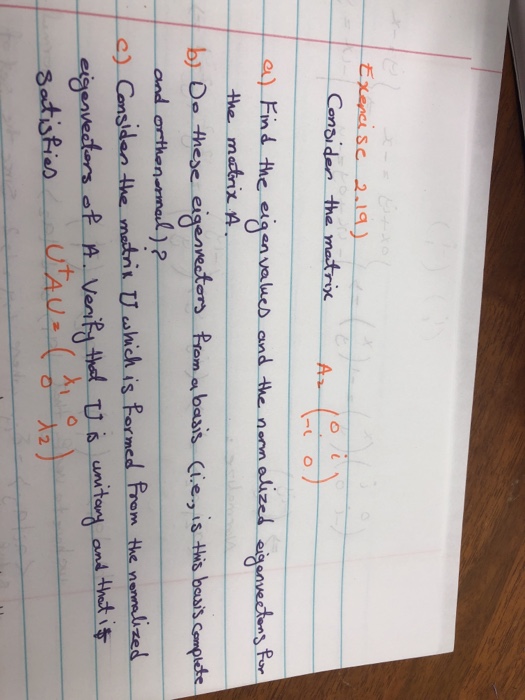 Exercise 2.19)
Consider the matrix
A = (0 i
-i 0)
a) Find the eigenvalues and the normalized eigenvectors for
the matrix A.
b) Do these eigenvectors from a basis (i.e., is this basis complete
and orthonormal)?
c) Consider the matrix U which is formed from the normalized
eigenvectors of A. Verify that U is unitary and that it
satisfies
U†AU = (λ1 0
0 λ2)